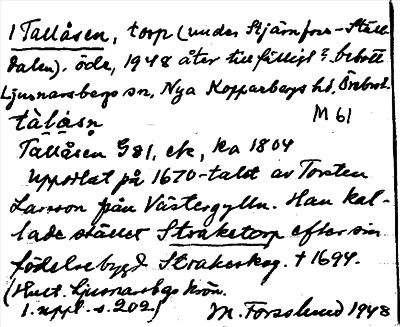 1 Tallåsen, torp (under Stjärnfors-Ställ-
dalen). öde, 1948 åter tillfälligt bebott
Ljusnarsbergs sn, Nya Kopparbergs hd, Örebro l.
M 61
tàlåsn
Tallåsen G81, ek, ka 1804
Upportat på 1670-talet av Torsten
Larsson från Västergylln. Han kal-
lade stället Straketorp efter sin
födelsebygd Strakeskog. † 1694.
(Hult. Ljusnarsbgs krön.
1. uppl. s. 202)
M. Forsslund 1948